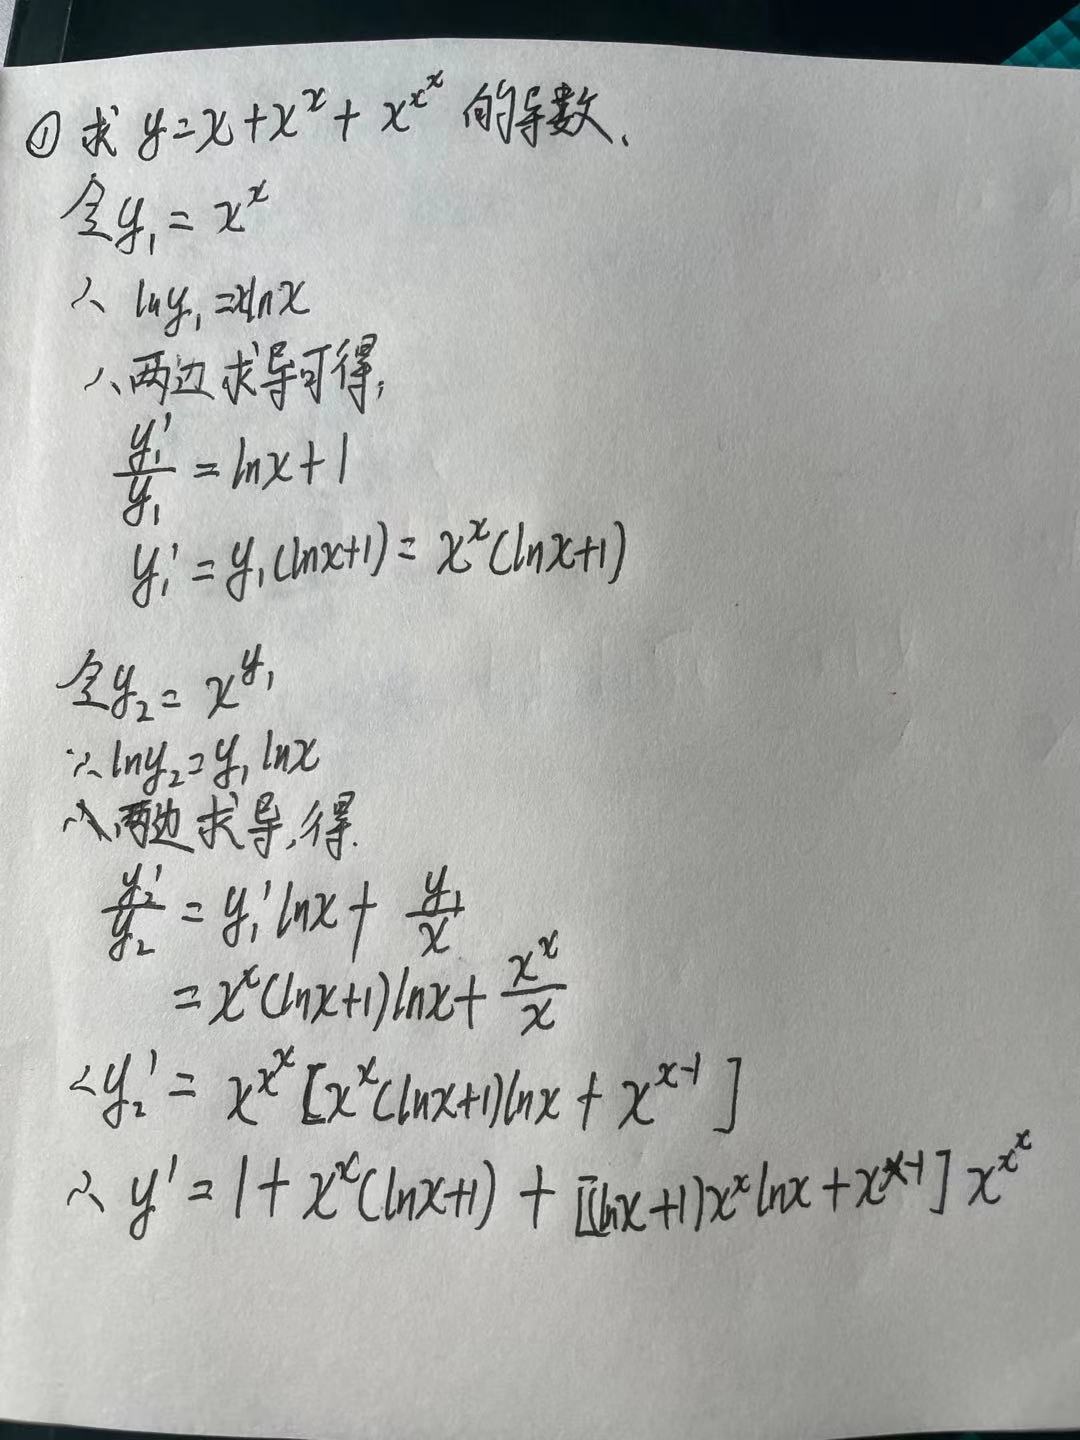 ① 求 y=x+x^x+x^{x^x} 的导数、
令y₁=x^x
∴ lny₁=xlnx
∴两边求导可得,
y₁'/y₁=lnx+1
y₁'=y₁(lnx+1)=x^x(lnx+1)
令y₂=x^{y₁}
∴lny₂=y₁lnx
∴两边求导,得.
y₂'/y₂=y₁'lnx+y₁/x
=x^x(lnx+1)lnx+x^x/x
∴y₂'=x^{x^x}[x^x(lnx+1)lnx+x^{x-1}]
∴y'=1+x^x(lnx+1)+[(lnx+1)x^xlnx+x^{x-1}]x^{x^x}